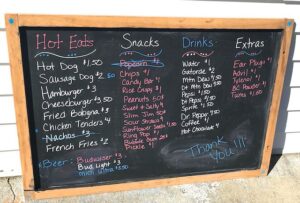 Hot Eats
Hot Dog $1.50
Sausage Dog $2.50
Hamburger $3
Cheeseburger $3.50
Fried Bologna $3
Chicken Tenders 4
Nachos $3
French Fries $2
Beer: Budweiser $3
Bud Light $3
Mich Ultra $3.50
Snacks
Popcorn
Chips $1
Candy Bar
Rice Crispy $1
Peanuts 50¢
Sweet & Salty
Slim Jim
Sour Straws
Sunflower Seeds
Ring Pop
Bubble Gum
Pickle $1
Drinks
Water $1
Gatorade $2
Mtn Dew
Dt Mtn Dew
Pepsi
Dt Pepsi
Sprite
Dr Pepper
Coffee
Hot Chocolate
Extras
Ear Plugs
Advil
Tylenol
BC Powder
Tums
Thank You!!!